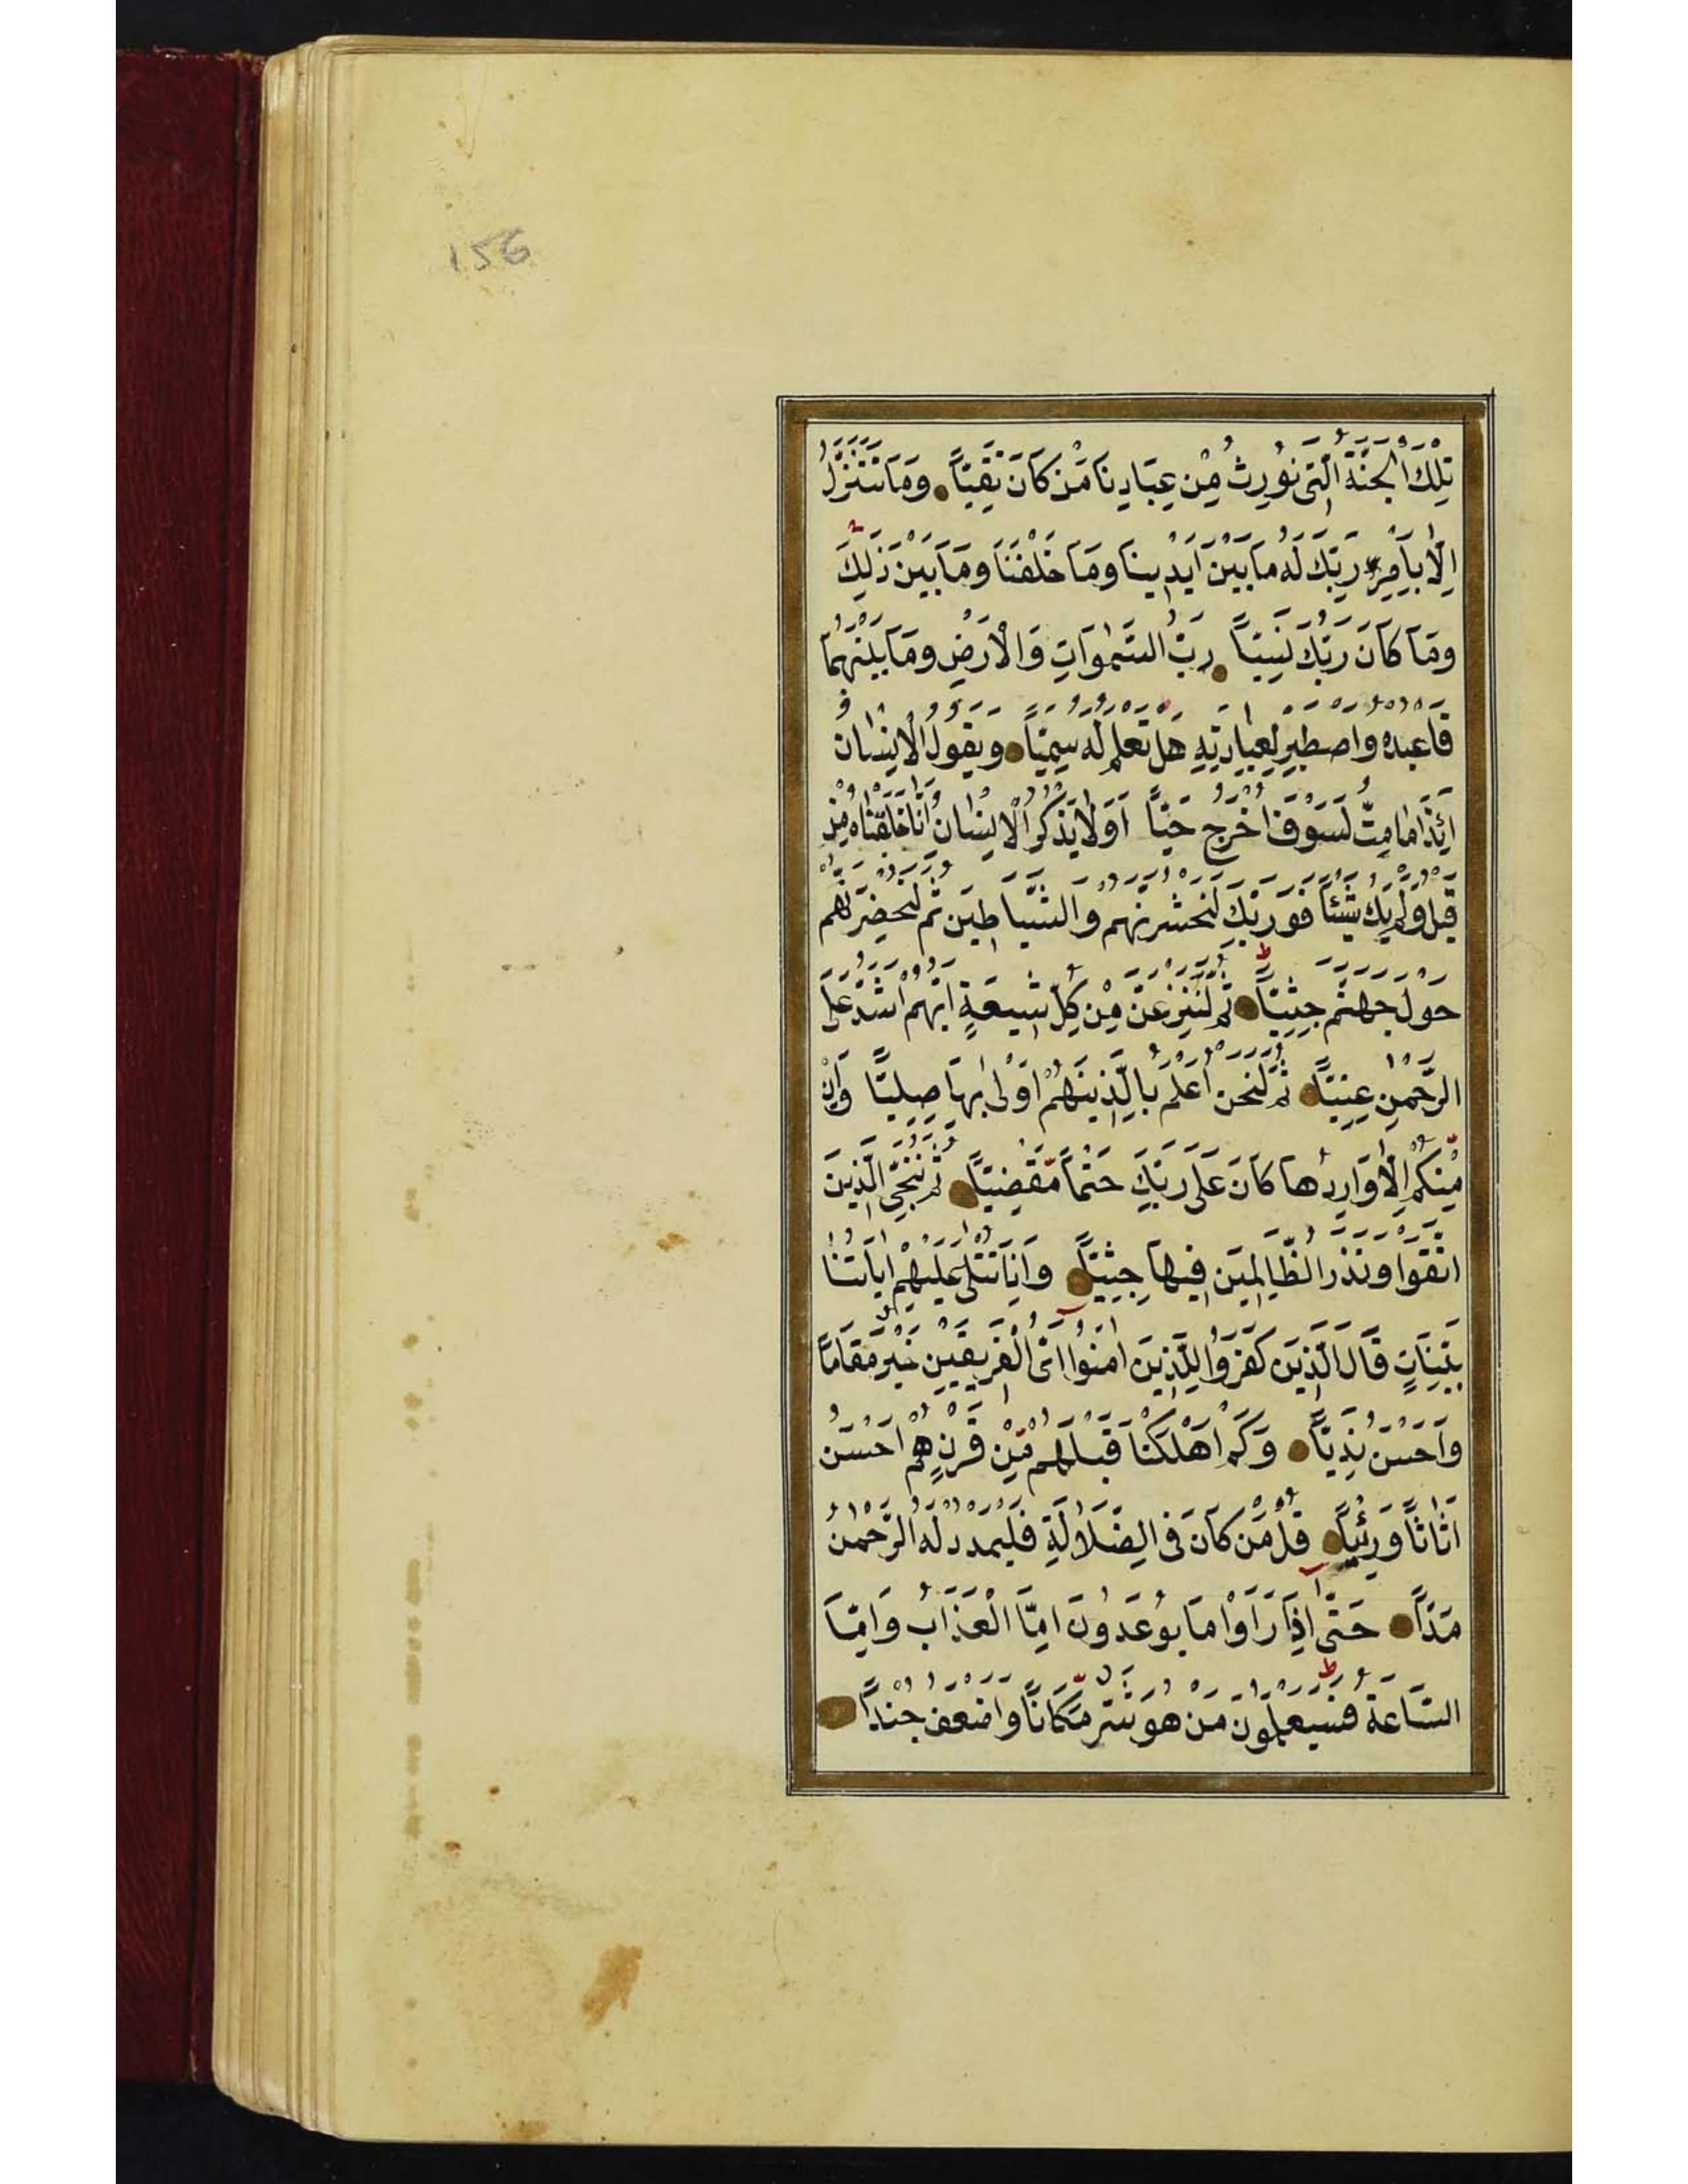 156
تِلْكَ الْجَنَّةُ الَّتِى نُورِثُ مِنْ عِبَادِنَا مَنْ كَانَ تَقِيًّا وَمَا نَتَنَزَّلُ
اِلَّا بِاَمْرِ رَبِّكَ لَهُ مَا بَيْنَ اَيْدِينَا وَمَا خَلْفَنَا وَمَا بَيْنَ ذٰلِكَ
وَمَا كَانَ رَبُّكَ نَسِيًّا رَبُّ السَّمٰوَاتِ وَالْاَرْضِ وَمَا بَيْنَهُمَا
فَاعْبُدْهُ وَاصْطَبِرْ لِعِبَادَتِهِ هَلْ تَعْلَمُ لَهُ سَمِيًّا وَيَقُولُ الْاِنْسَانُ
اَئِذَا مَا مِتُّ لَسَوْفَ اُخْرَجُ حَيًّا اَوَلَا يَذْكُرُ الْاِنْسَانُ اَنَّا خَلَقْنَاهُ مِنْ
قَبْلُ وَلَمْ يَكُ شَيْئًا فَوَرَبِّكَ لَنَحْشُرَنَّهُمْ وَالشَّيَاطِينَ ثُمَّ لَنُحْضِرَنَّهُمْ
حَوْلَ جَهَنَّمَ جِثِيًّا ثُمَّ لَنَنْزِعَنَّ مِنْ كُلِّ شِيعَةٍ اَيُّهُمْ اَشَدُّ عَلَى
الرَّحْمٰنِ عِتِيًّا ثُمَّ لَنَحْنُ اَعْلَمُ بِالَّذِينَ هُمْ اَوْلٰى بِهَا صِلِيًّا وَاِنْ
مِنْكُمْ اِلَّا وَارِدُهَا كَانَ عَلٰى رَبِّكَ حَتْمًا مَقْضِيًّا ثُمَّ نُنَجِّى الَّذِينَ
اتَّقَوْا وَنَذَرُ الظَّالِمِينَ فِيهَا جِثِيًّا وَاِذَا تُتْلٰى عَلَيْهِمْ اٰيَاتُنَا
بَيِّنَاتٍ قَالَ الَّذِينَ كَفَرُوا لِلَّذِينَ اٰمَنُوا اَىُّ الْفَرِيقَيْنِ خَيْرٌ مَقَامًا
وَاَحْسَنُ نَدِيًّا وَكَمْ اَهْلَكْنَا قَبْلَهُمْ مِنْ قَرْنٍ هُمْ اَحْسَنُ
اَثَاثًا وَرِئْيًا قُلْ مَنْ كَانَ فِى الضَّلَالَةِ فَلْيَمْدُدْ لَهُ الرَّحْمٰنُ
مَدًّا حَتّٰى اِذَا رَاَوْا مَا يُوعَدُونَ اِمَّا الْعَذَابَ وَاِمَّا
السَّاعَةَ فَسَيَعْلَمُونَ مَنْ هُوَ شَرٌّ مَكَانًا وَاَضْعَفُ جُنْدًا